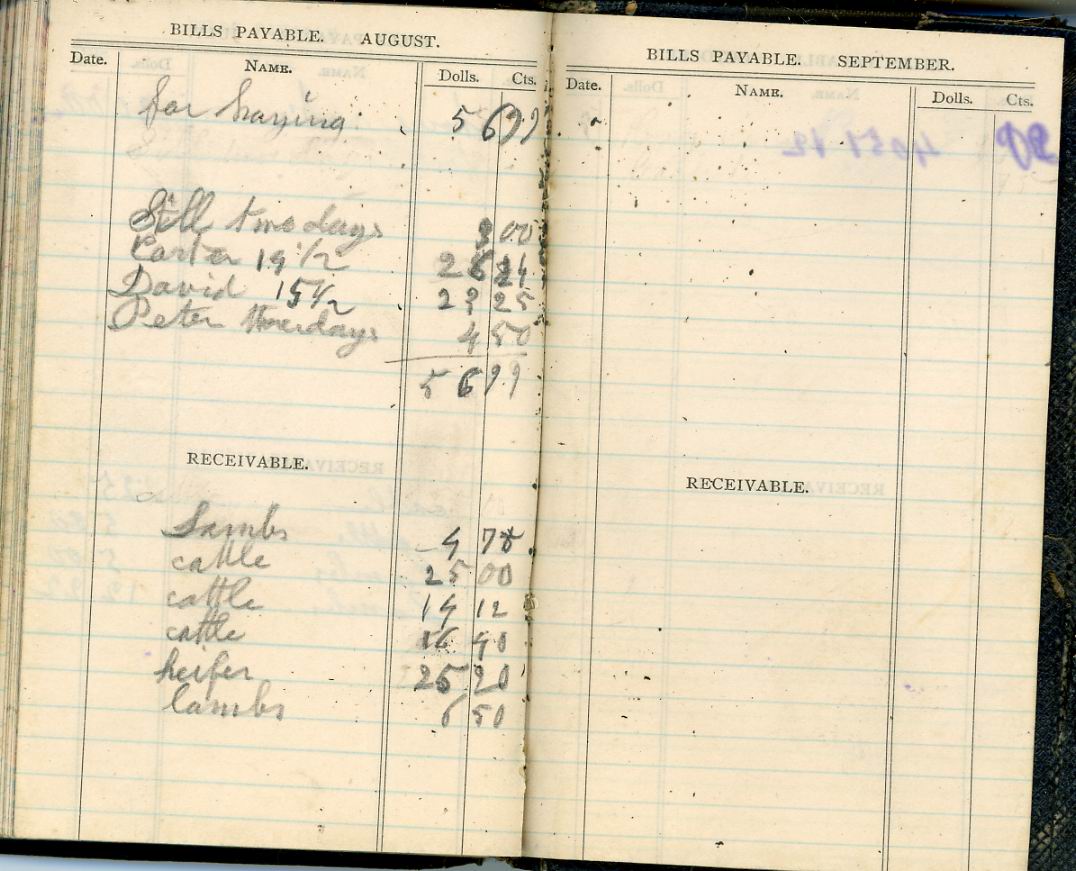 BILLS PAYABLE. AUGUST.
Date. NAME. Dolls. Cts.
for haying 56 99
Still two days 3 00
Carter 19 1/2 26 24
David 15 1/2 23 25
Peter three days 4 50
56 99
RECEIVABLE.
Lambs 4
cattle 25 00
cattle 14 12
cattle 16 40
heifer 25 20
lambs 6 50
BILLS PAYABLE. SEPTEMBER.
Date. NAME. Dolls. Cts.
RECEIVABLE.